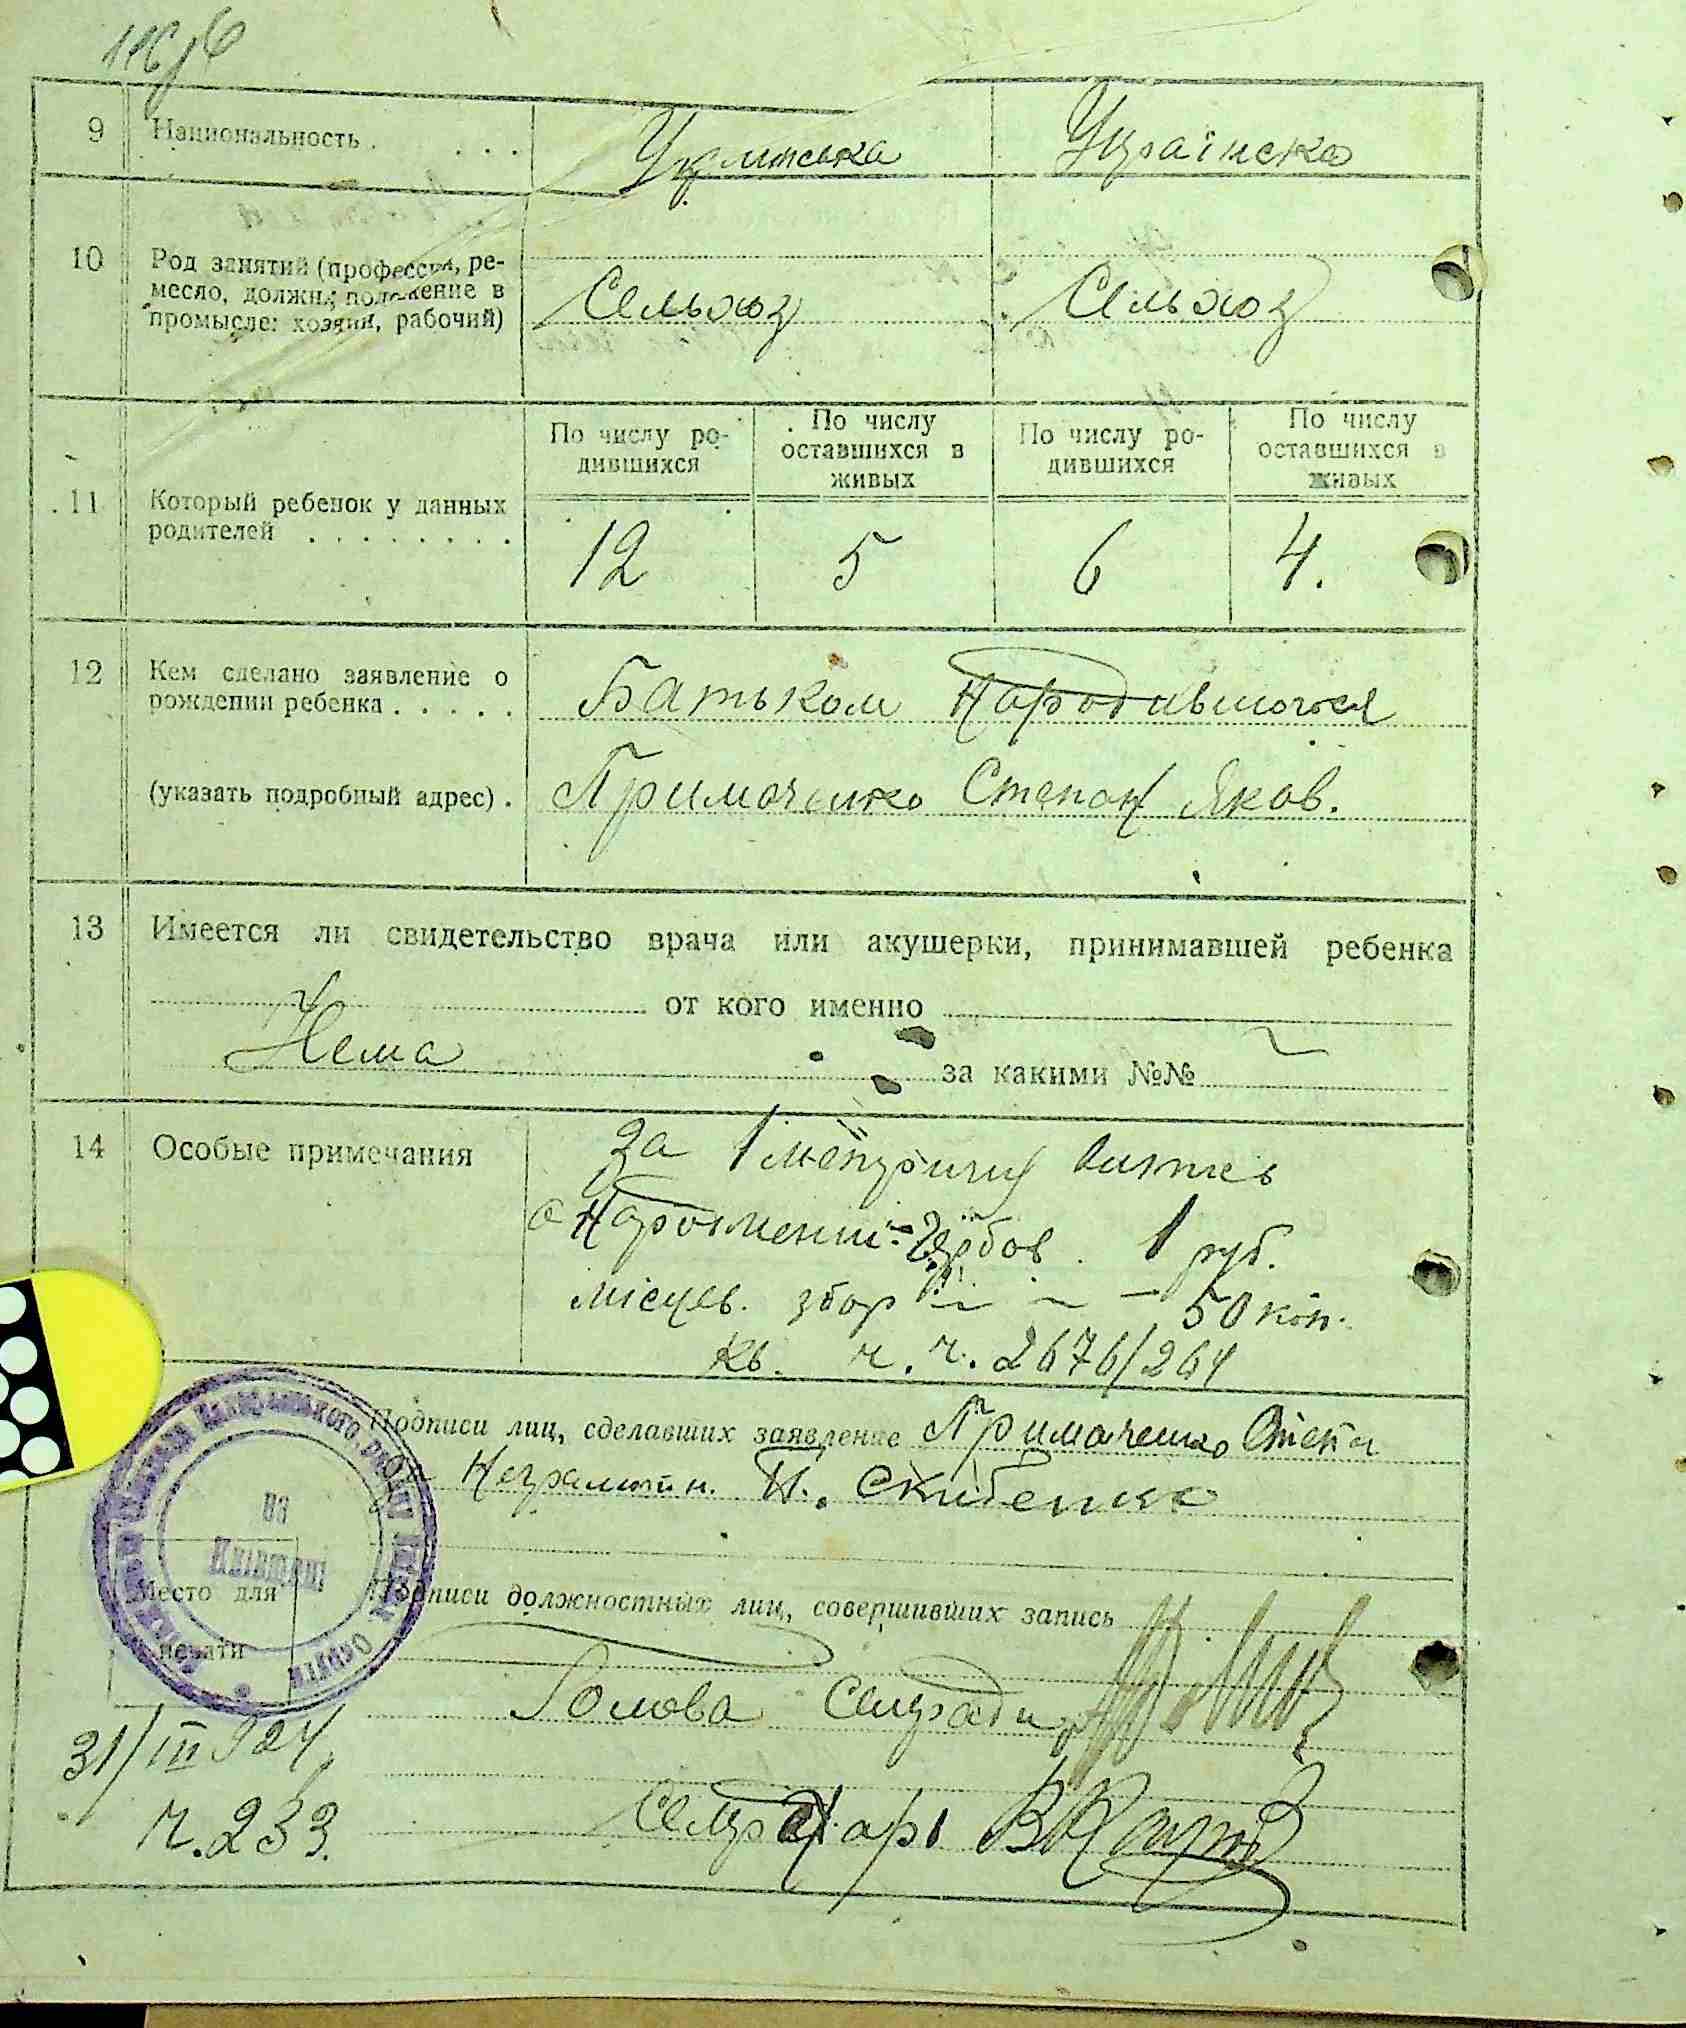 9 Национальность . . . . Українська Українска
10 Род занятий (профессия, ре-
месло, должн., положение в
промысле: хозяин, рабочий)
Сельхоз Сельхоз
По числу ро-
дившихся
По числу
оставшихся в
живых
По числу ро-
дившихся
По числу
оставшихся в
живых
11 Который ребенок у данных
родителей . . . . . . . .
12 5 6 4.
12 Кем сделано заявление о
рождении ребенка . . . . .
Батьком народившогося
(указать подробный адрес) . Примаченко Степан Яков.
13 Имеется ли свидетельство врача или акушерки, принимавшей ребенка
от кого именно
Нема за какими №№
14 Особые примечания
За метричну випись
о народженні Гербов. 1 руб.
місцев. збор 50 коп.
кв. ч. ч. 2676/264
Подписи лиц, сделавших заявление Примаченко Степан
Неграмотн. Скибенко
Место для
печати
Подписи должностных лиц, совершивших запись
Голова сельради
31/III 924
ч. 233.
Секретарь